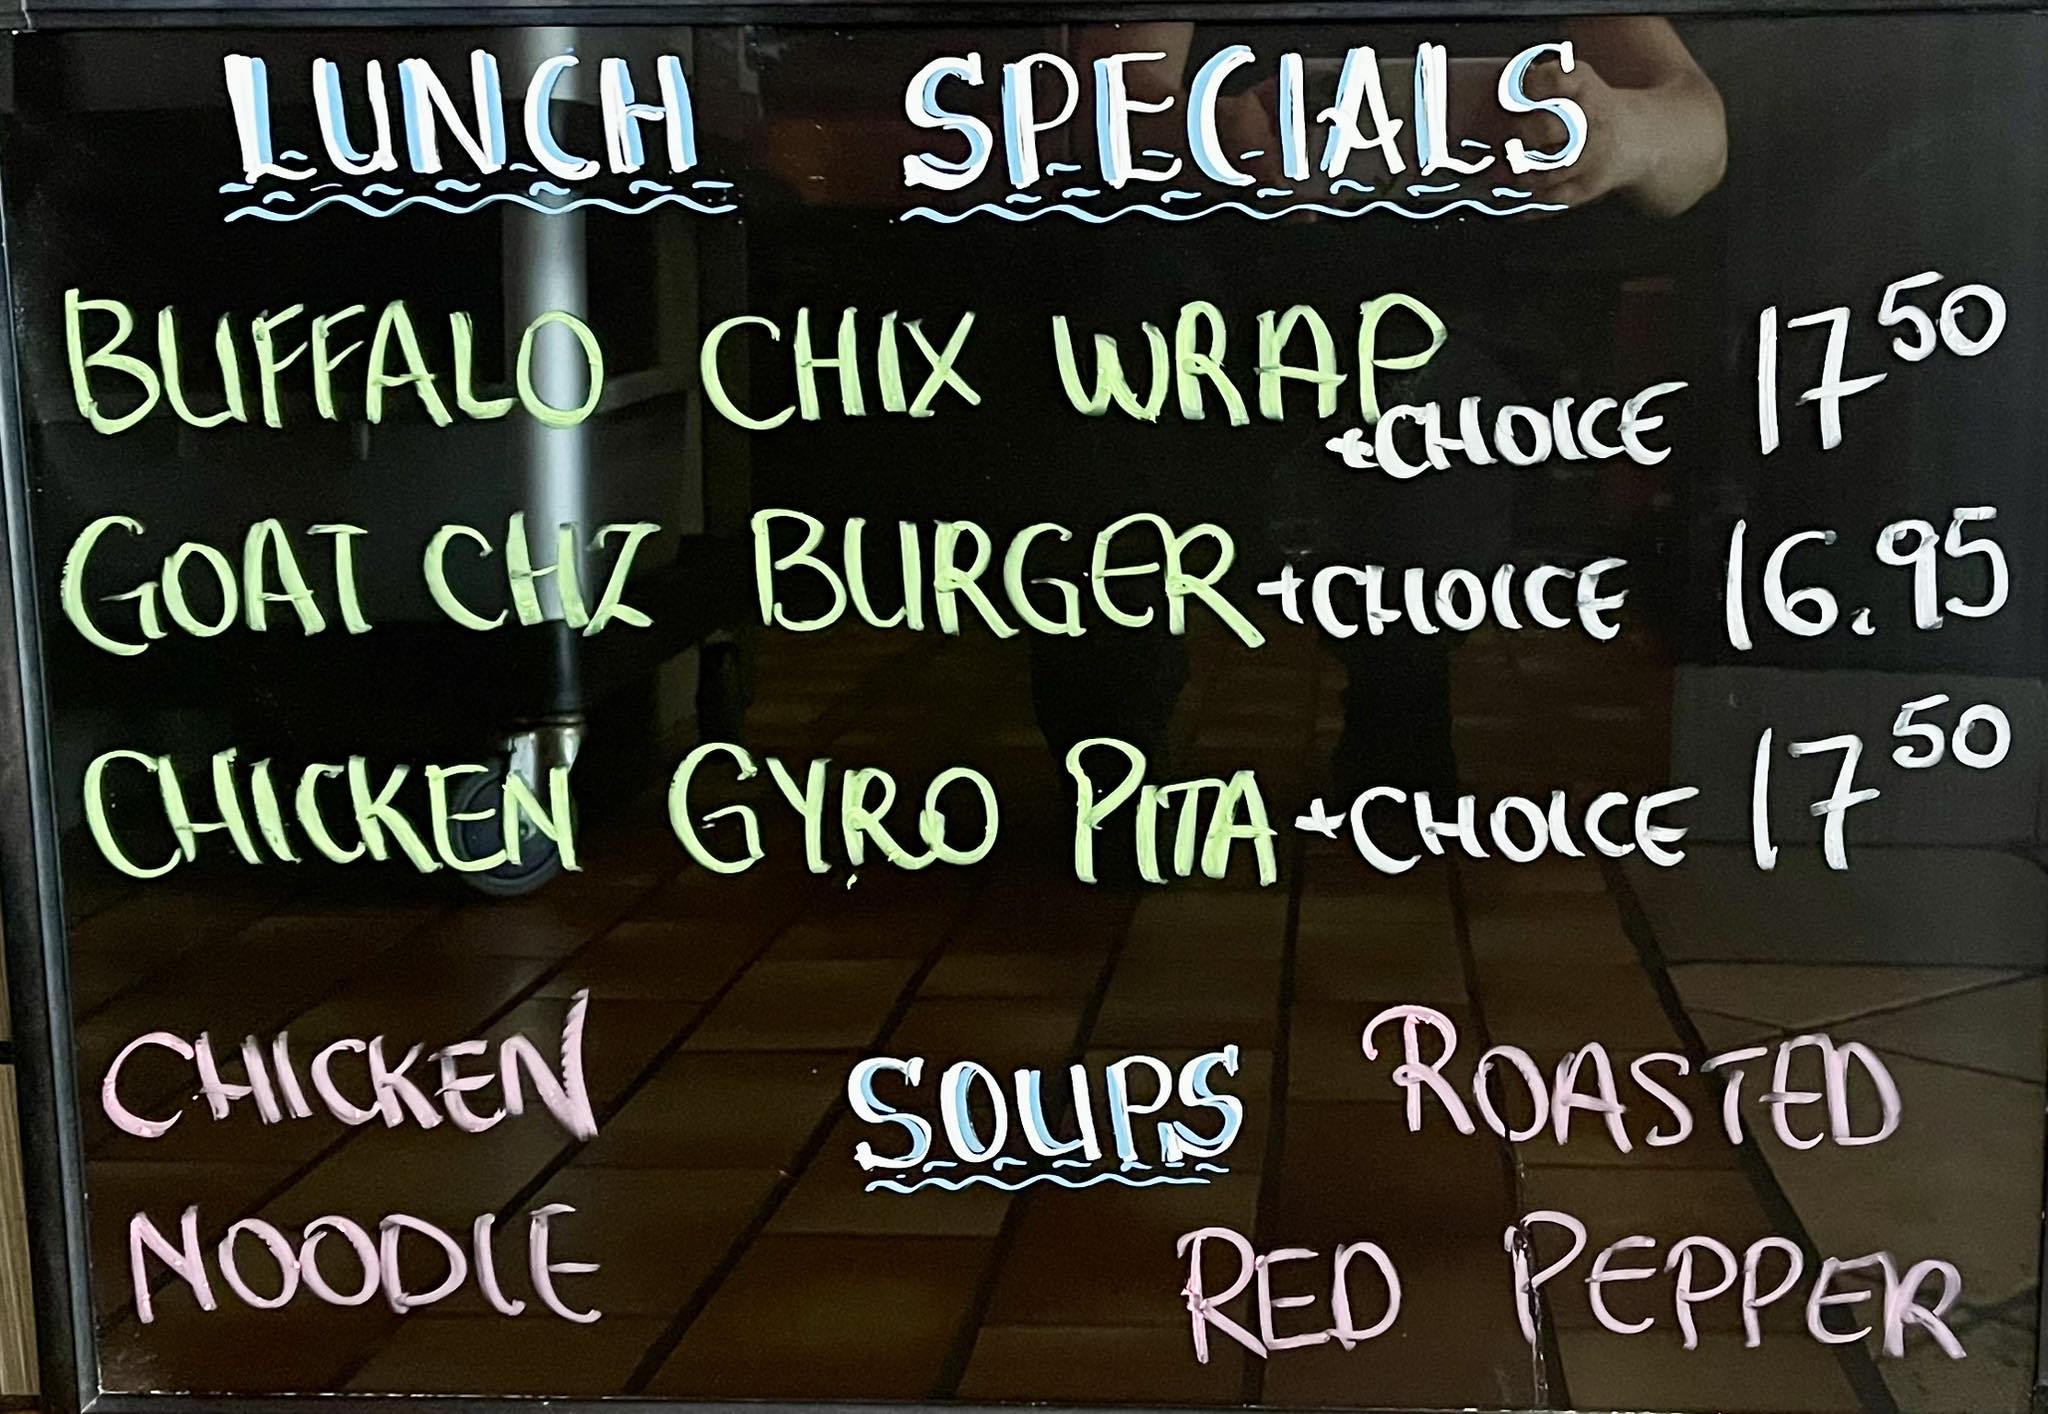 LUNCH SPECIALS
BUFFALO CHIX WRAP +CHOICE 17 50
GOAT CHZ BURGER +CHOICE 16.95
CHICKEN GYRO PITA +CHOICE 17 50
SOUPS
CHICKEN
NOODLE
ROASTED
RED PEPPER